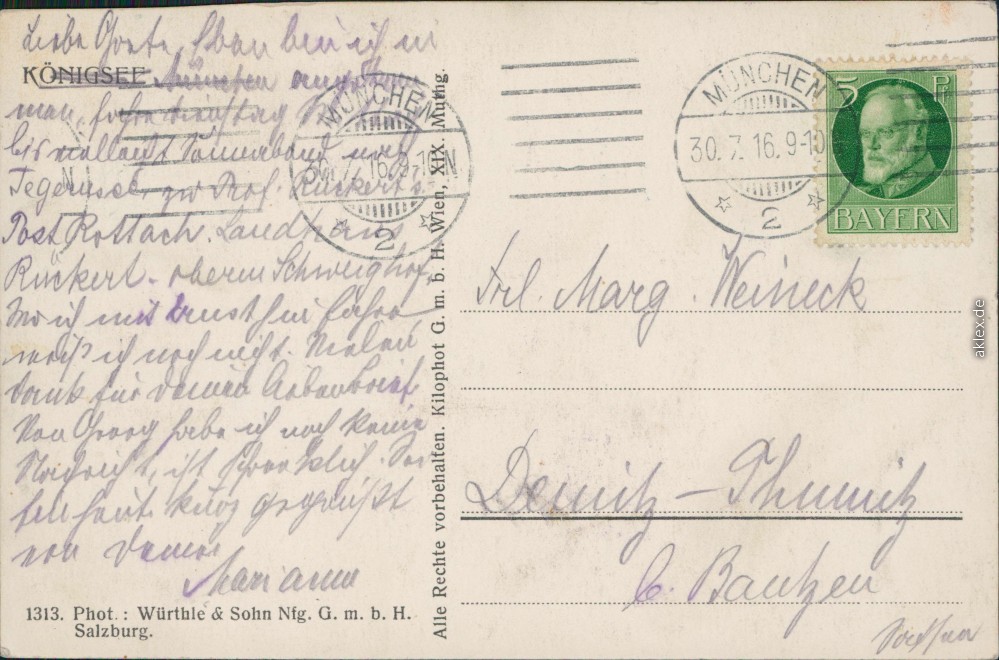 Liebe Grete, Eben bin ich in
KÖNIGSEE
München angekom
men, fahre Dienstag
bis vielleicht Sonnabend nach
Tegernsee zu Prof. Rückerts.
Post Rottach. Landhaus
Rückert. oberm Schweighof.
Wo ich mit Ernst hin fahre
weiß ich noch nicht. Vielen
Dank für Deinen lieben Brief.
Von Georg habe ich noch keine
Nachricht, ist schrecklich. Sei
für heut kurz gegrüßt
von Deiner
Marianne
1313. Phot.: Würthle & Sohn Nfg. G. m. b. H.
Salzburg.
Alle Rechte vorbehalten. Kilophot G. m. b. H. Wien, XIX. Muthg.
MÜNCHEN
2
MÜNCHEN
30.7.16.9-10
2
5 Pf
BAYERN
Frl. Marg. Weineck
Demitz-Thumitz
b. Bautzen
Sachsen
aklex.de